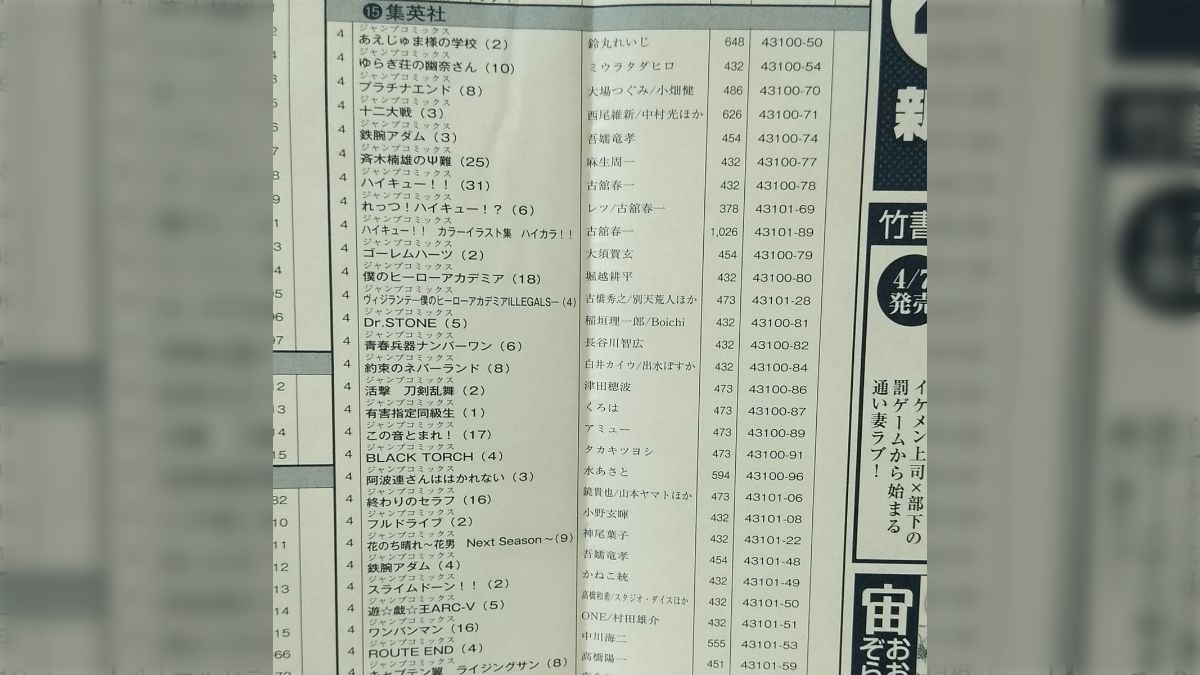 ⑮集英社
ジャンプコミックス
4 あえじゅま様の学校(2) 鈴丸れいじ 648 43100-50
ジャンプコミックス
4 ゆらぎ荘の幽奈さん(10) ミウラタダヒロ 432 43100-54
ジャンプコミックス
4 プラチナエンド(8) 大場つぐみ/小畑健 486 43100-70
ジャンプコミックス
4 十二大戦(3) 西尾維新/中村光ほか 626 43100-71
ジャンプコミックス
4 鉄腕アダム(3) 吾嬬竜孝 454 43100-74
ジャンプコミックス
4 斉木楠雄のΨ難(25) 麻生周一 432 43100-77
ジャンプコミックス
4 ハイキュー!!(31) 古舘春一 432 43100-78
ジャンプコミックス
4 れっつ!ハイキュー!?(6) レツ/古舘春一 378 43101-69
ジャンプコミックス
4 ハイキュー!! カラーイラスト集 ハイカラ!! 古舘春一 1,026 43101-89
ジャンプコミックス
4 ゴーレムハーツ(2) 大須賀玄 454 43100-79
ジャンプコミックス
4 僕のヒーローアカデミア(18) 堀越耕平 432 43100-80
ジャンプコミックス
4 ヴィジランテ―僕のヒーローアカデミアILLEGALS―(4) 古橋秀之/別天荒人ほか 473 43101-28
ジャンプコミックス
4 Dr.STONE(5) 稲垣理一郎/Boichi 432 43100-81
ジャンプコミックス
4 青春兵器ナンバーワン(6) 長谷川智広 432 43100-82
ジャンプコミックス
4 約束のネバーランド(8) 白井カイウ/出水ぽすか 432 43100-84
ジャンプコミックス
4 活撃 刀剣乱舞(2) 津田穂波 473 43100-86
ジャンプコミックス
4 有害指定同級生(1) くろは 473 43100-87
ジャンプコミックス
4 この音とまれ!(17) アミュー 473 43100-89
ジャンプコミックス
4 BLACK TORCH(4) タカキツヨシ 473 43100-91
ジャンプコミックス
4 阿波連さんははかれない(3) 水あさと 594 43100-96
ジャンプコミックス
4 終わりのセラフ(16) 鏡貴也/山本ヤマトほか 473 43101-06
ジャンプコミックス
4 フルドライブ(2) 小野玄暉 432 43101-08
ジャンプコミックス
4 花のち晴れ～花男 Next Season～(9) 神尾葉子 432 43101-22
ジャンプコミックス
4 鉄腕アダム(4) 吾嬬竜孝 454 43101-48
ジャンプコミックス
4 スライムドーン!!(2) かねこ統 432 43101-49
ジャンプコミックス
4 遊☆戯☆王ARC-V(5) 高橋和希/スタジオ・ダイスほか 432 43101-50
ジャンプコミックス
4 ワンパンマン(16) ONE/村田雄介 432 43101-51
ジャンプコミックス
4 ROUTE END(4) 中川海二 555 43101-53
ジャンプコミックス
4 キャプテン翼 ライジングサン(8) 高橋陽一 451 43101-59
新
竹書
4/7
発売
イケメン上司×部下の
罰ゲームから始まる
通い妻ラブ!
宙
おお
ぞら